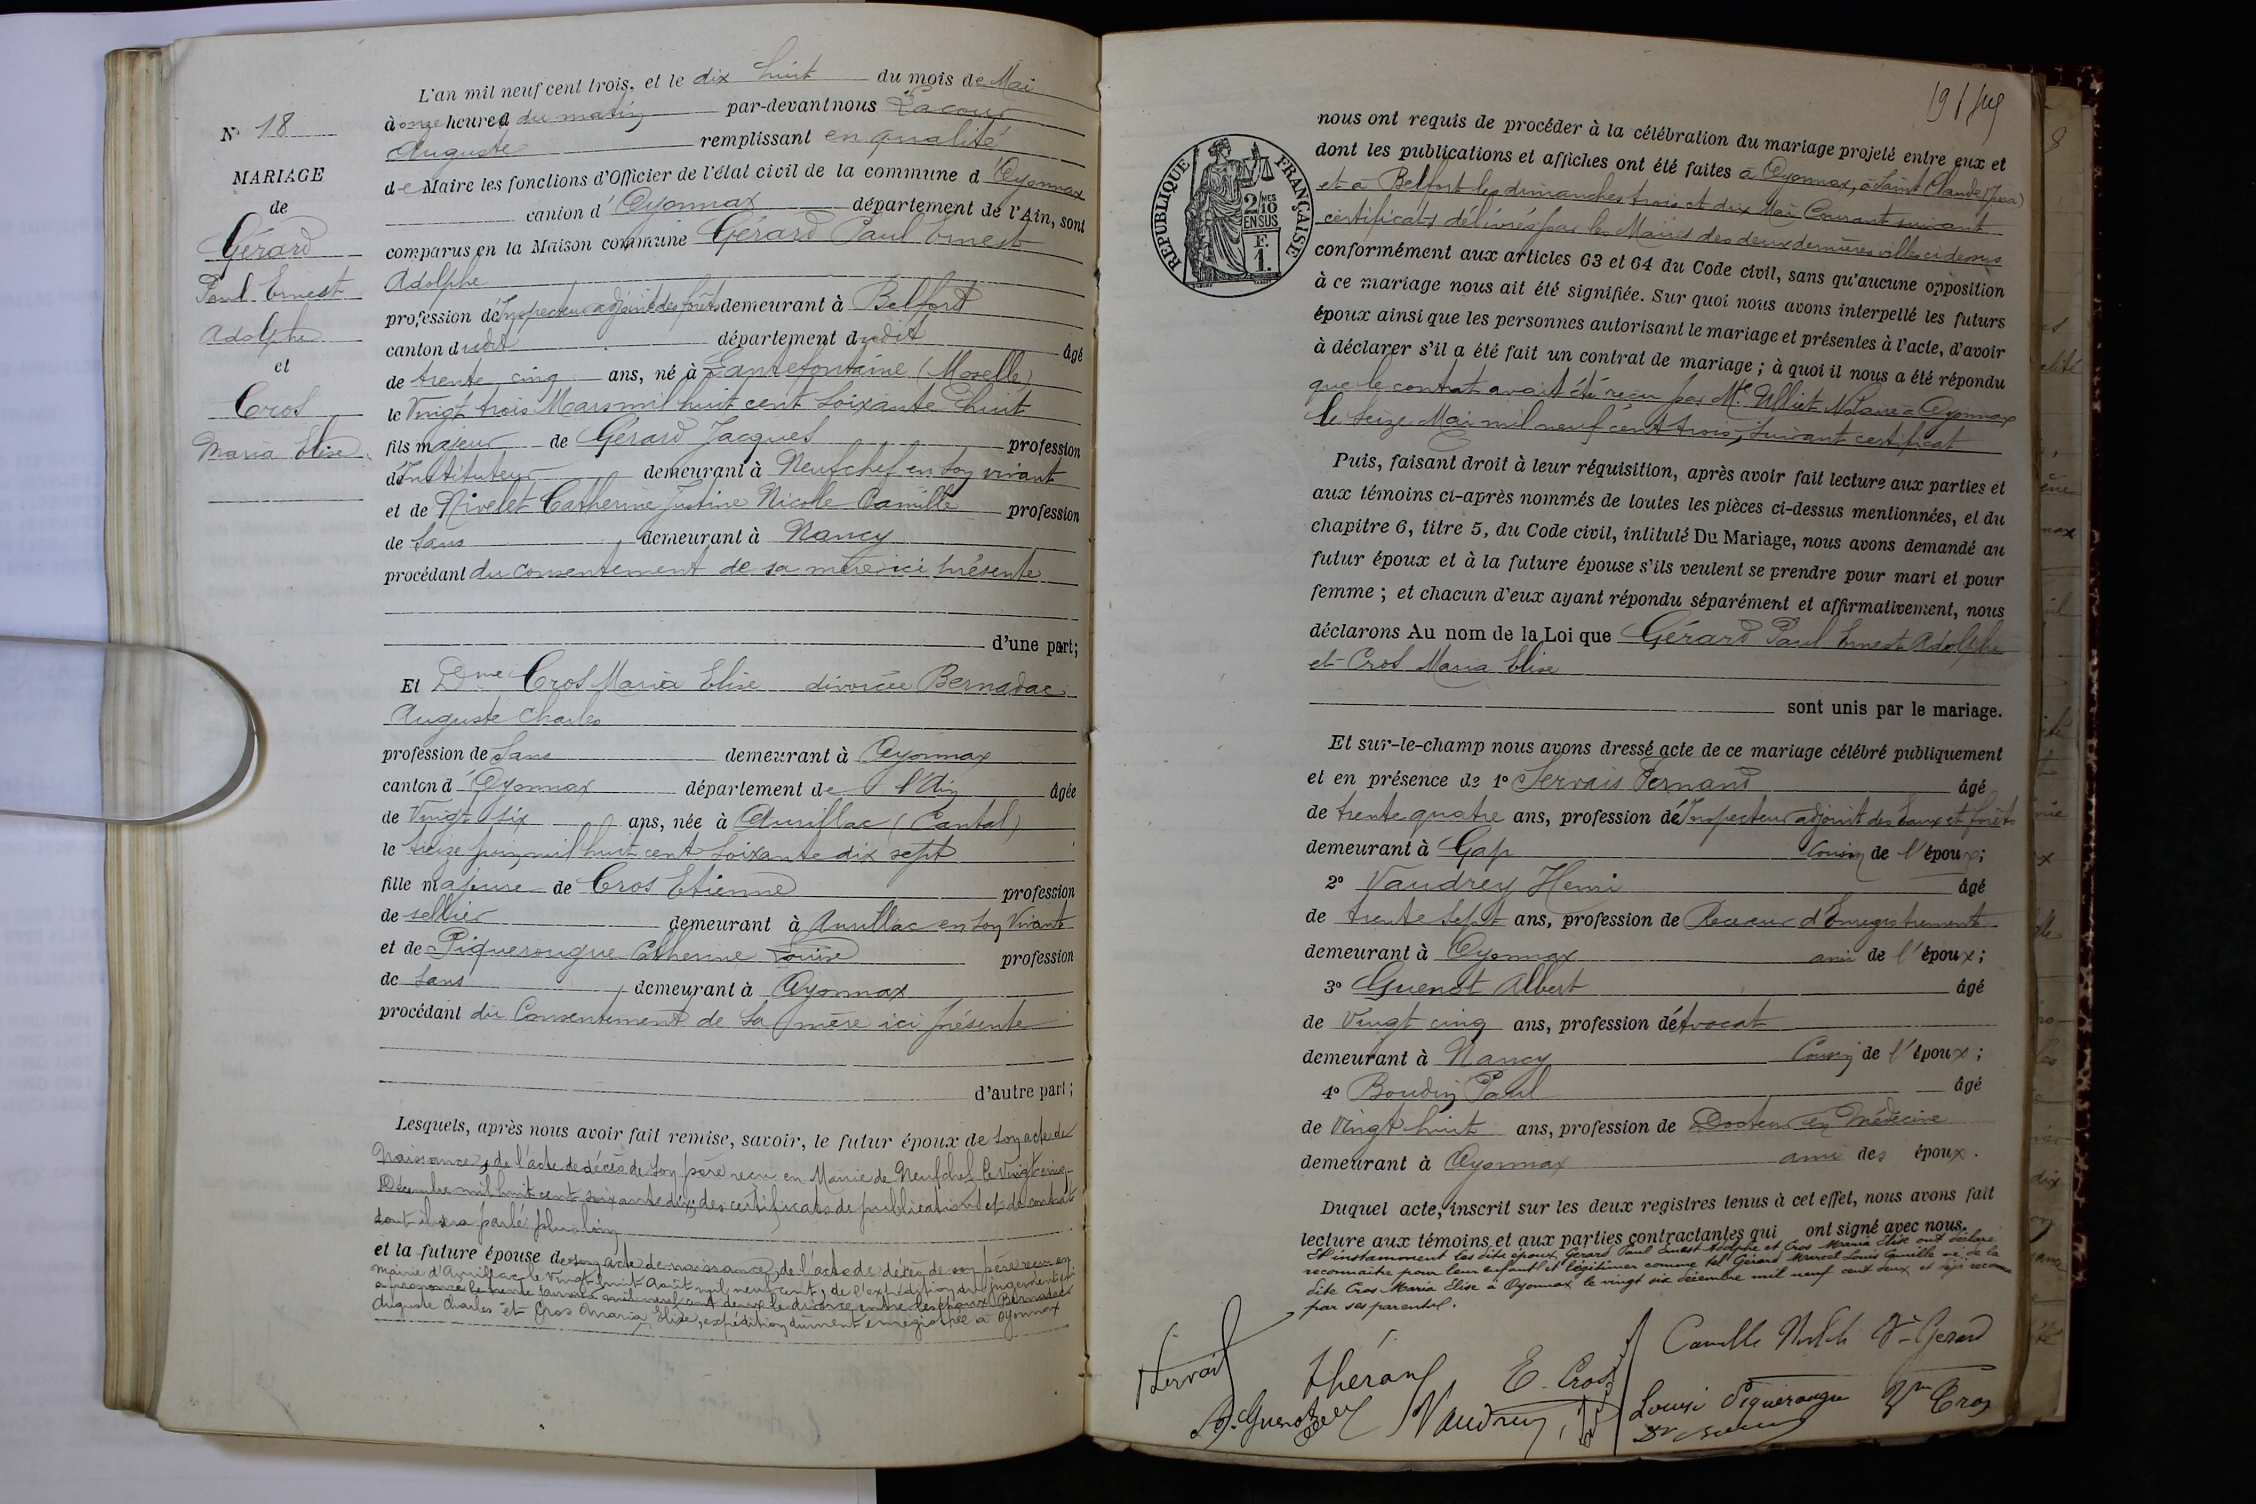 N° 18
MARIAGE
de
Gérard
Paul Ernest
Adolphe
et
Cros
Maria Elise
L'an mil neuf cent trois, et le dix huit du mois de Mai
à onze heures du matin par-devant nous Lacour
Auguste remplissant en qualité
de Maire les fonctions d'Officier de l'état civil de la commune d'Oyonnax
canton d'Oyonnax département de l'Ain, sont
comparus en la Maison commune Gérard Paul Ernest
Adolphe
profession d'Inspecteur adjoint des forêts demeurant à Belfort
canton dudit département dudit âgé
de trente cinq ans, né à Lantefontaine (Moselle)
le Vingt trois Mars mil huit cent soixante huit
fils majeur de Gérard Jacques profession
d'Instituteur demeurant à Neufchef en son vivant
et de Nivelet Catherine Justine Nicole Camille profession
de sans demeurant à Nancy
procédant du consentement de sa mère ici présente
d'une part;
Et Dme Cros Maria Elise divorcée Bernadac
Auguste Charles
profession de sans demeurant à Oyonnax
canton d'Oyonnax département de l'Ain âgée
de Vingt six ans, née à Aurillac (Cantal)
le treize juin mil huit cent soixante dix sept
fille majeure de Cros Etienne profession
de sellier demeurant à Aurillac en son vivant
et de Piquerougue Catherine Louise profession
de sans demeurant à Oyonnax
procédant du Consentement de sa mère ici présente
d'autre part;
Lesquels, après nous avoir fait remise, savoir, le futur époux de son acte de
Naissance, de l'acte de décès de son père reçu en Mairie de Neufchef le Vingt cinq
Décembre mil huit cent soixante dix, des certificats de publications et de contrat
dont il sera parlé plus loin
et la future épouse de son acte de naissance, de l'acte de décès de son père reçu en
Mairie d'Aurillac le Vingt huit Août mil neuf cent, de l'expédition du jugement qui
a prononcé le trente Janvier mil neuf cent deux le divorce entre les époux Bernadac
Auguste Charles et Cros Maria Elise, expédition dûment enregistrée à Oyonnax
RÉPUBLIQUE FRANÇAISE
2 MES
10
EN SUS
F.
1.
nous ont requis de procéder à la célébration du mariage projeté entre eux et
dont les publications et affiches ont été faites à Oyonnax, à Saint Claude (Jura)
et à Belfort les dimanches trois et dix Mai Courant suivant
certificats délivrés par les Maires des deux dernières villes ci dessus
conformément aux articles 63 et 64 du Code civil, sans qu'aucune opposition
à ce mariage nous ait été signifiée. Sur quoi nous avons interpellé les futurs
époux ainsi que les personnes autorisant le mariage et présentes à l'acte, d'avoir
à déclarer s'il a été fait un contrat de mariage ; à quoi il nous a été répondu
que le contrat avait été reçu par Me Ulliet Notaire à Oyonnax
le seize Mai mil neuf cent trois, suivant certificat
Puis, faisant droit à leur réquisition, après avoir fait lecture aux parties et
aux témoins ci-après nommés de toutes les pièces ci-dessus mentionnées, et du
chapitre 6, titre 5, du Code civil, intitulé Du Mariage, nous avons demandé au
futur époux et à la future épouse s'ils veulent se prendre pour mari et pour
femme ; et chacun d'eux ayant répondu séparément et affirmativement, nous
déclarons Au nom de la Loi que Gérard Paul Ernest Adolphe
et Cros Maria Elise
sont unis par le mariage.
Et sur-le-champ nous avons dressé acte de ce mariage célébré publiquement
et en présence de 1° Servais Fernand âgé
de trente quatre ans, profession d'Inspecteur adjoint des Eaux et forêts
demeurant à Gap cousin de l'époux;
2° Vaudrey Henri âgé
de trente sept ans, profession de Receveur d'Enregistrement
demeurant à Oyonnax ami de l'époux;
3° Guenot Albert âgé
de Vingt cinq ans, profession d'Avocat
demeurant à Nancy Cousin de l'époux ;
4° Boudin Paul âgé
de Vingt huit ans, profession de Docteur en Médecine
demeurant à Oyonnax ami des époux.
Duquel acte, inscrit sur les deux registres tenus à cet effet, nous avons fait
lecture aux témoins et aux parties contractantes qui ont signé avec nous.
Et instamment les dits époux Gérard Paul Ernest Adolphe et Cros Maria Elise ont déclaré
reconnaître pour leur enfant et légitimer comme tel Gérard Marcel Louis Camille né de la
dite Cros Maria Elise à Oyonnax le vingt six décembre mil neuf cent deux et déjà reconnu
par ses parents.
Servais
E. Cros
Camille Vve Gerard
A. Guenot
Vaudrey
Louise Piquerougue Vve Cros